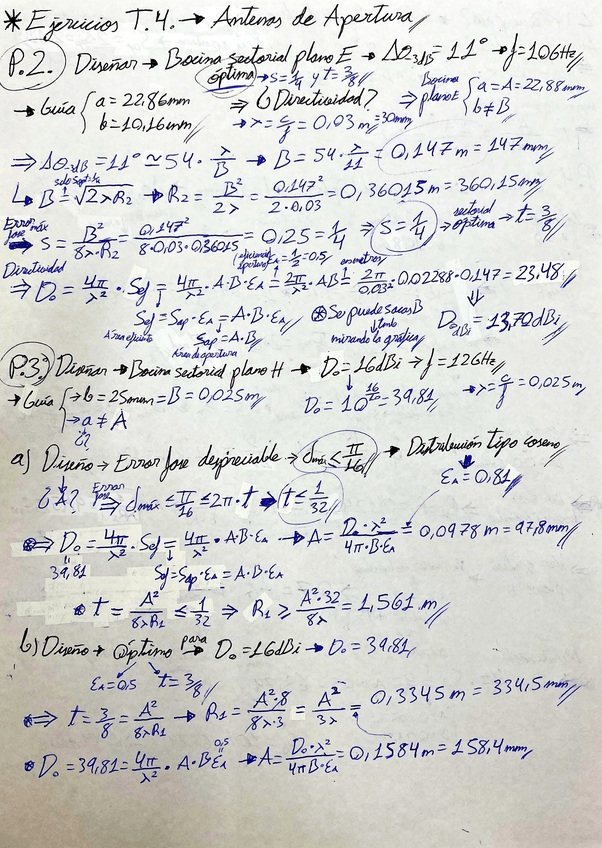 * Ejercicios T.4. → Antenas de Apertura
P.2. Diseñar → Bocina sectorial plano E → ΔΘ3dB = 11° → f = 10GHz
óptima → s = 1/4 y t = 3/8
→ Guía { a = 22,86mm b = 10,16mm ⇒ ¿Directividad? ⇒ Bocina plano E { a = A = 22,88mm b ≠ B
→ λ = c/f = 0,03 m = 30mm
⇒ ΔΘ3dB = 11° ≃ 54 · λ/B → B = 54 · λ/11 = 0,147 m = 147 mm
↳ B = √2λR2 → R2 = B²/2λ = 0,147²/2·0,03 = 0,36015m = 360,15mm
Error fase máx ⇒ s = B²/8λR2 = 0,147²/8·0,03·0,36015 = 0,25 = 1/4 ⇒ s = 1/4 → sectorial óptima → t = 3/8
Directividad (eficiencia apertura) εA = 1/2 = 0,5 en metros
⇒ D₀ = 4π/λ² · Sef = 4π/λ² · A·B·εA = 2π/λ² · AB = 2π/0,03² · 0,02288 · 0,147 = 23,48
Sef = Sap · εA = A·B·εA ⊛ Se puede sacar B D₀dBi = 13,70dBi
Área eficiente Sap = A·B tamb mirando la gráfica
Área de apertura
P.3. Diseñar → Bocina sectorial plano H → D₀ = 16dBi → f = 12GHz
→ Guía { → b = 25mm = B = 0,025m D₀ = 10^16/10 = 39,81 → λ = c/f = 0,025m
→ a ≠ A
¿?
a) Diseño → Error fase despreciable → δmáx ≤ π/16 → Distribución tipo coseno
¿A? Error fase ⇒ δmáx ≤ π/16 ≤ 2π · t ⇒ t ≤ 1/32 εA = 0,81
⊛⇒ D₀ = 4π/λ² · Sef = 4π/λ² · A·B·εA → A = D₀·λ²/4π·B·εA = 0,0978 m = 97,8mm
39,81 Sef = Sap · εA = A·B·εA
• t = A²/8λR1 ≤ 1/32 ⇒ R1 ≥ A²·32/8λ = 1,561 m
b) Diseño → óptimo para → D₀ = 16dBi → D₀ = 39,81
εA = 0,5 t = 3/8
⊛⇒ t = 3/8 = A²/8λR1 → R1 = A²·8/8λ·3 = A²/3λ = 0,3345 m = 334,5mm
• D₀ = 39,81 = 4π/λ² · A·B εA 0,5 → A = D₀·λ²/4πB·εA = 0,1584m = 158,4mm